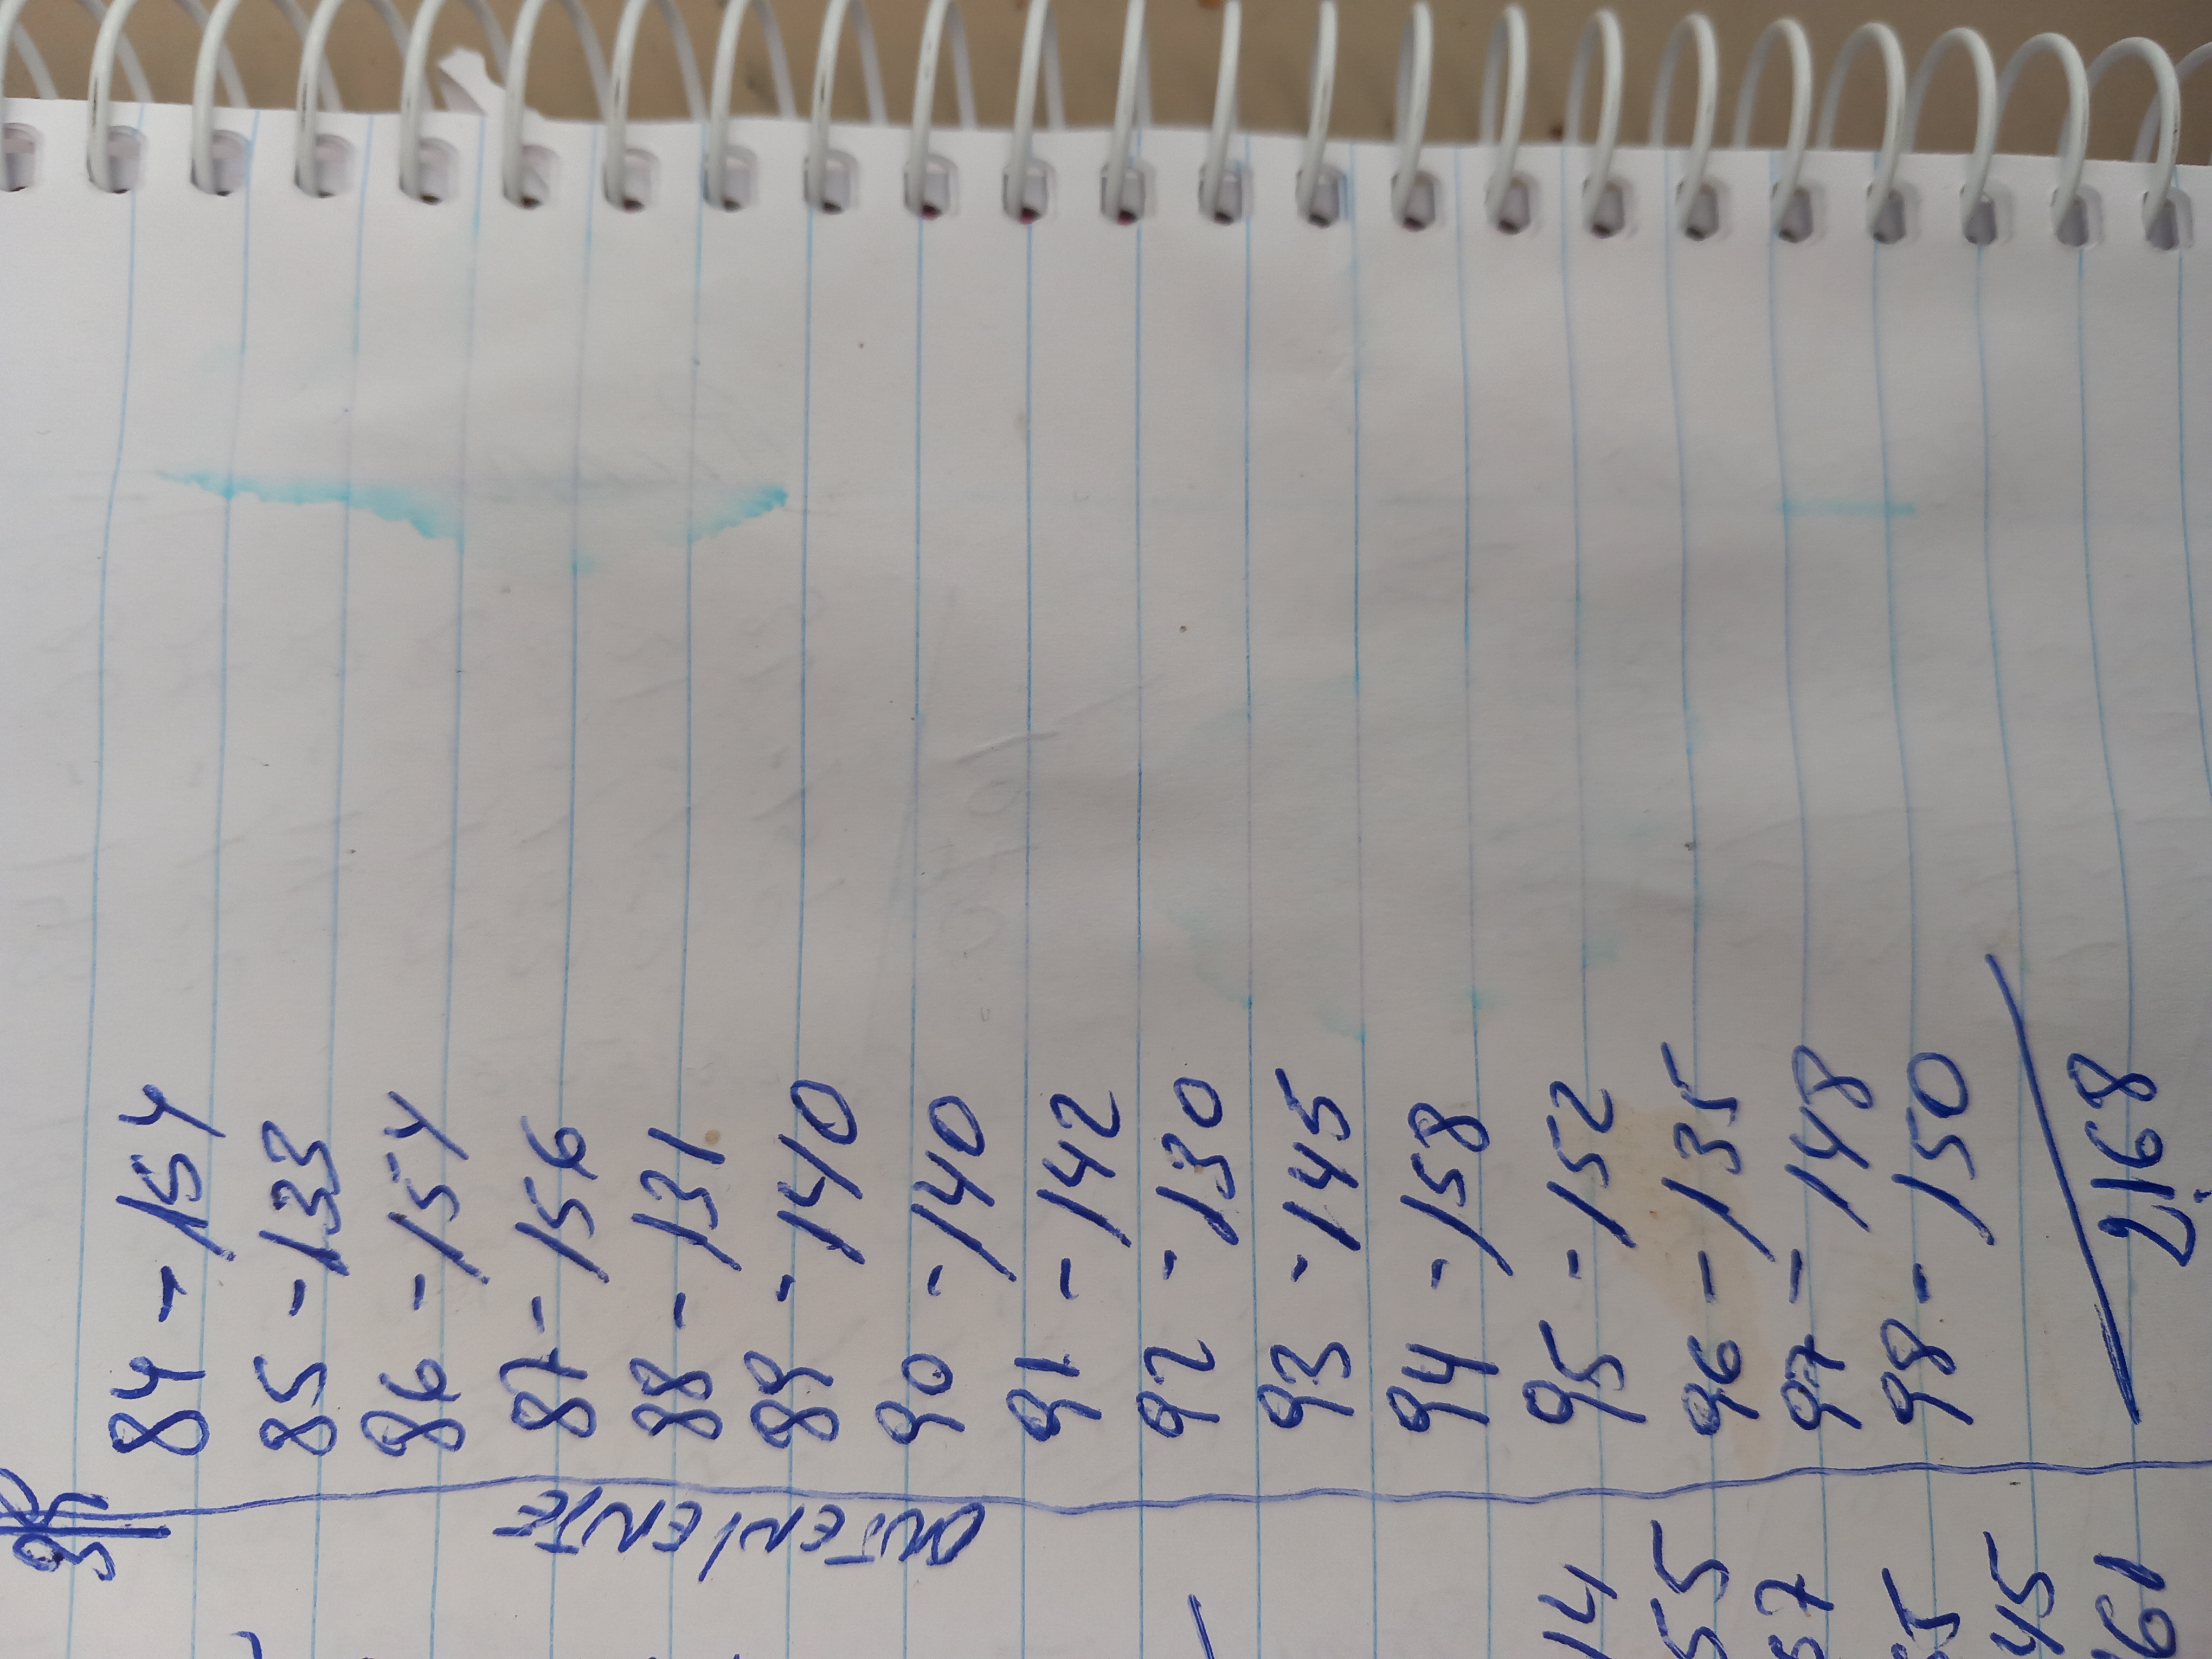 84 - 154
85 - 133
86 - 154
87 - 156
88 - 131
89 - 140
90 - 140
91 - 142
92 - 130
93 - 145
94 - 158
95 - 152
96 - 135
97 - 148
98 - 150
2168
14
55
57
45
161